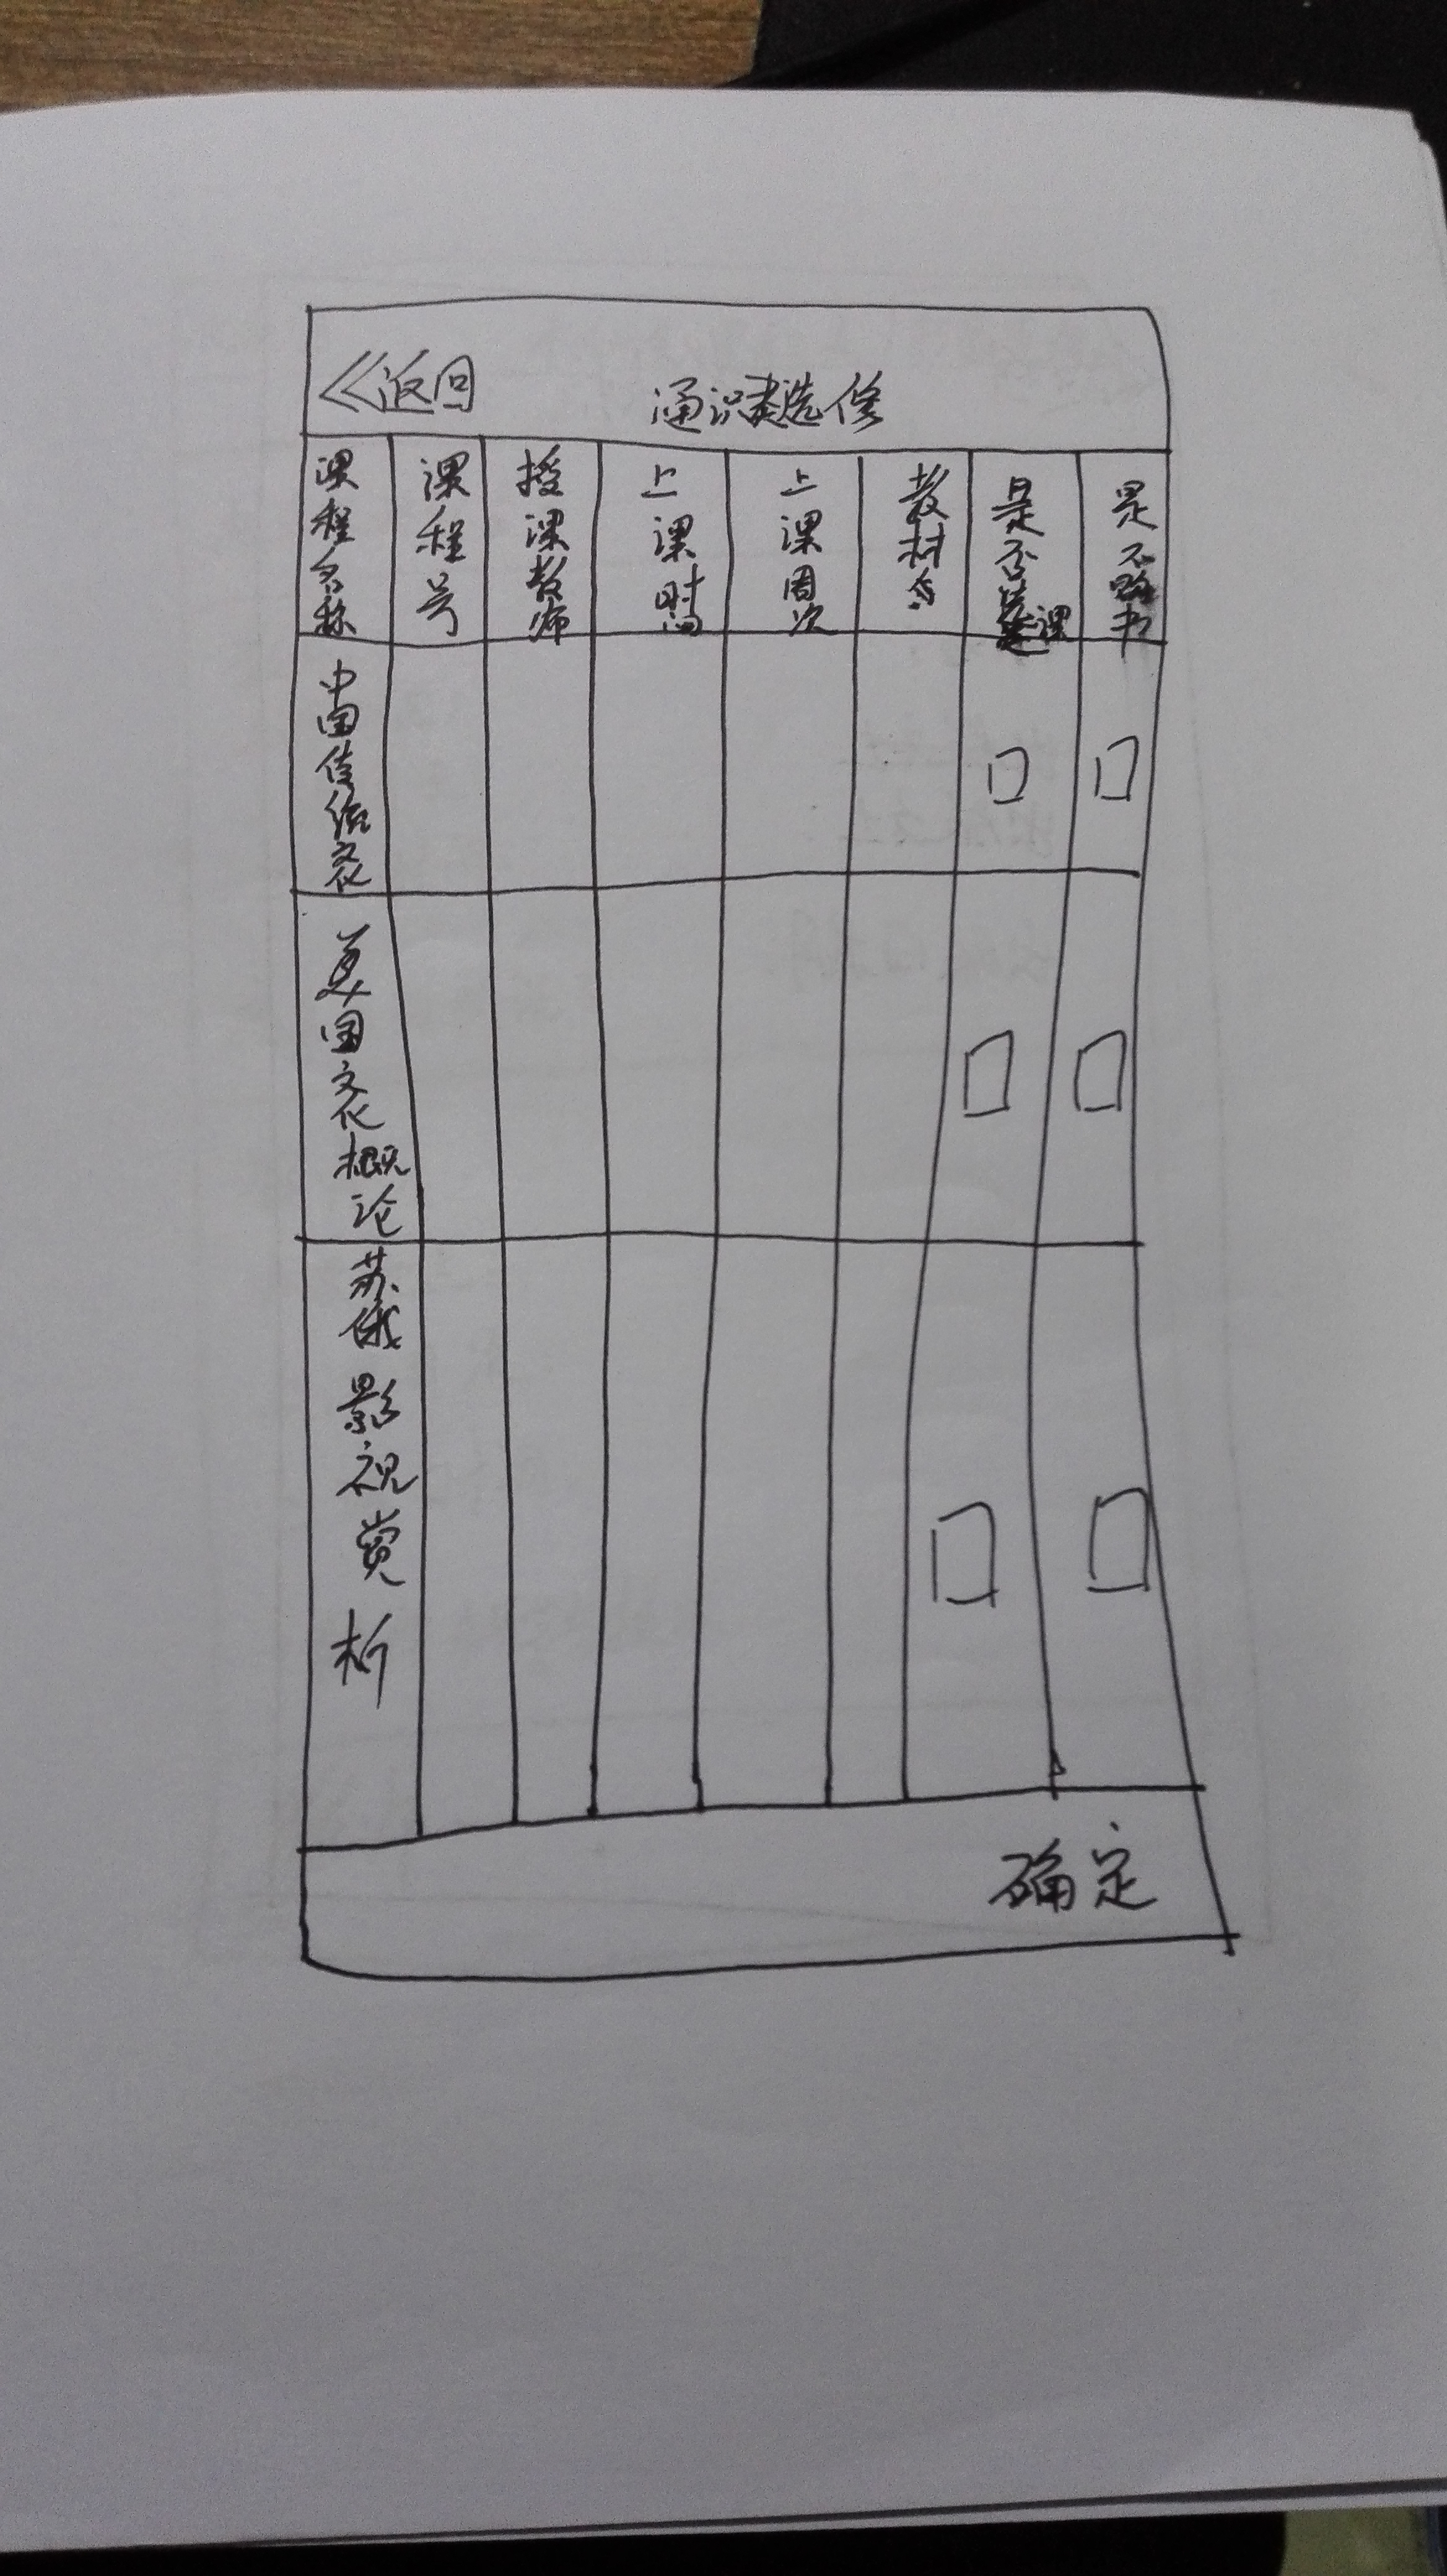 <<返回
通识类选修
课程名称
课程号
授课教师
上课时间
上课周次
教材
是否选课
是否购书
中国传统文化
美国文化概论
苏俄影视赏析
确定